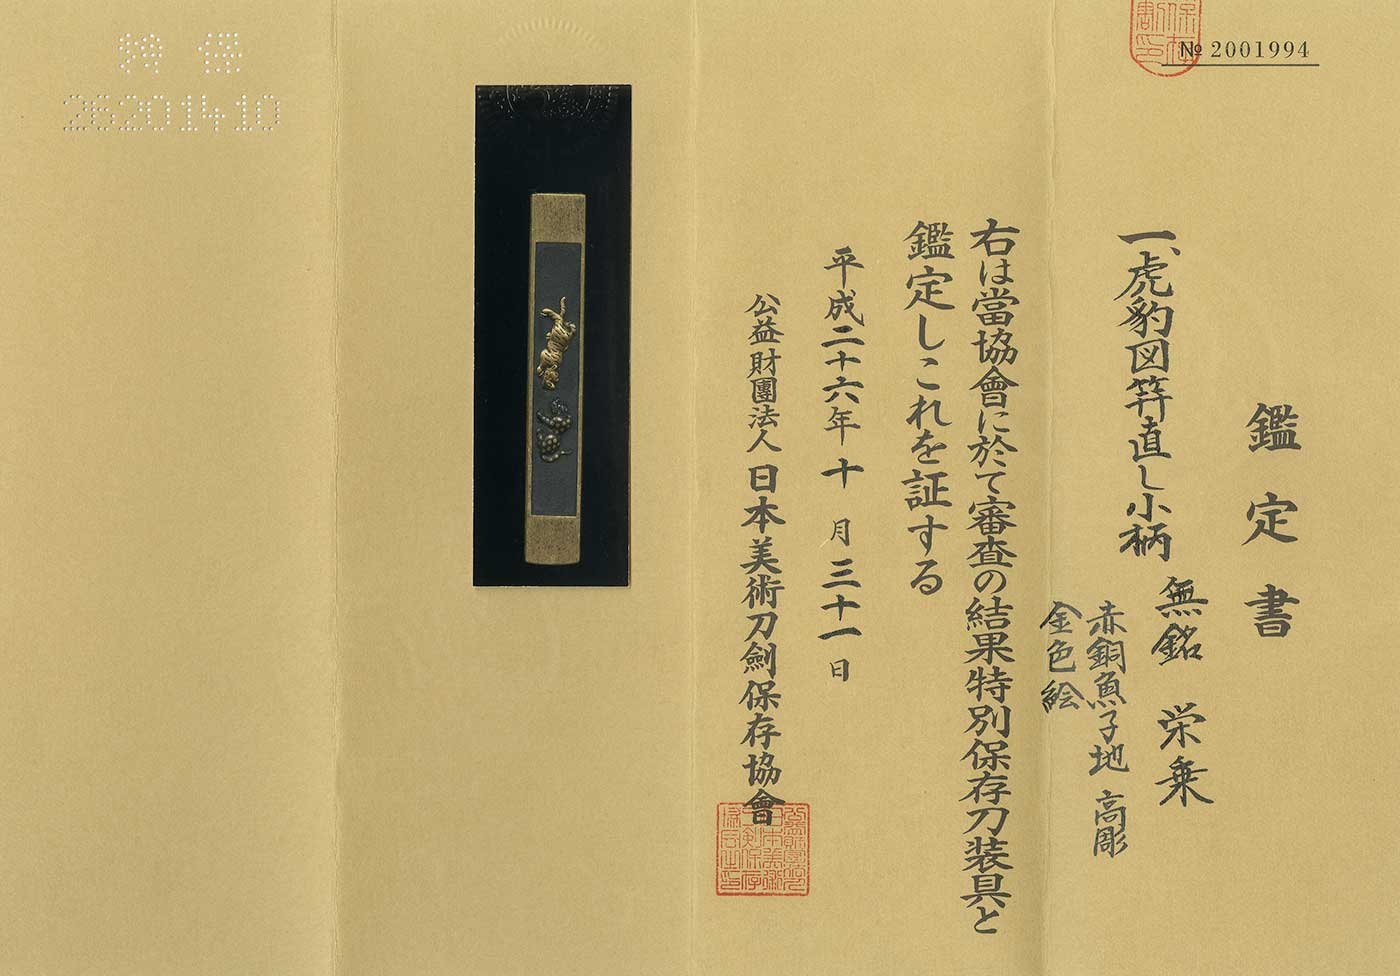 № 2001994
鑑定書
一、虎豹図笄直し小柄 無銘 栄乗
赤銅魚子地 高彫
金色絵
右は當協會に於て審査の結果特別保存刀装具と
鑑定しこれを証する
平成二十六年十月三十一日
公益財團法人日本美術刀劍保存協會
特保
26201410